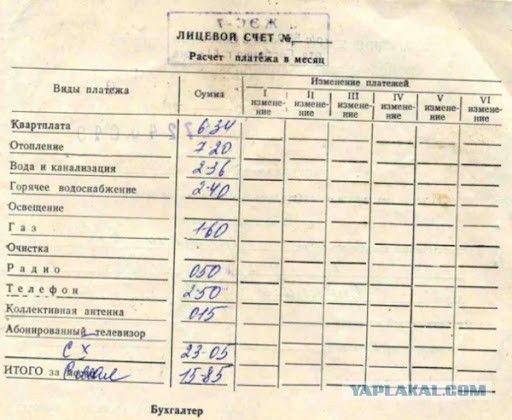 ЖЭС-7
ЛИЦЕВОЙ СЧЕТ №
Расчет платежа в месяц
Виды платежа Сумма Изменение платежей
I изменение II изменение III изменение IV изменение V изменение VI изменение
Квартплата 6-34
Отопление 7-20
Вода и канализация 2-36
Горячее водоснабжение 2-40
Освещение
Газ 1-60
Очистка
Радио 0-50
Телефон 2-50
Коллективная антенна 0-15
Абонированный телевизор
СХ 23-05
ИТОГО за 15-85
Бухгалтер
YAPLAKAL.COM